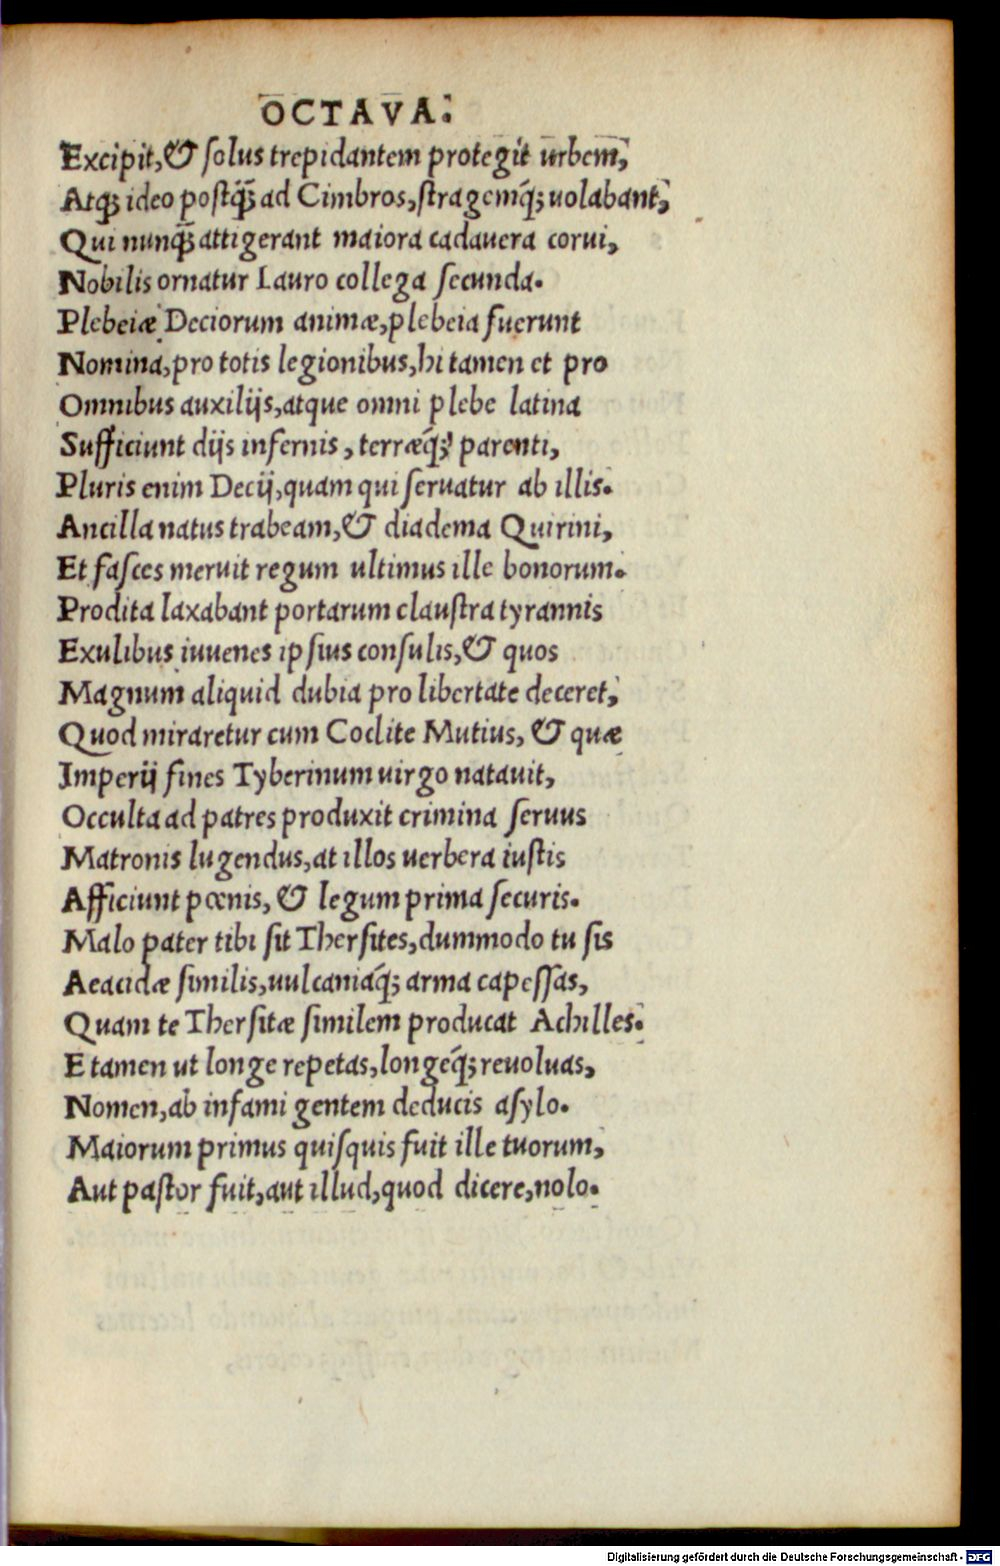 OCTAVA.
Excipit,& ſolus trepidantem protegit urbem,
Atq; ideo poſtq̃ ad Cimbros,ſtragemq́; uolabant,
Qui nunq̃ attigerant maiora cadauera corui,
Nobilis ornatur Lauro collega ſecunda.
Plebeiæ Deciorum animæ,plebeia fuerunt
Nomina,pro totis legionibus,hi tamen et pro
Omnibus auxilijs,atque omni plebe latina
Sufficiunt dijs infernis, terræq́; parenti,
Pluris enim Decij,quam qui ſeruatur ab illis.
Ancilla natus trabeam,& diadema Quirini,
Et faſces meruit regum ultimus ille bonorum.
Prodita laxabant portarum clauſtra tyrannis
Exulibus iuuenes ipſius conſulis,& quos
Magnum aliquid dubia pro libertate deceret,
Quod miraretur cum Coclite Mutius, & quæ
Imperij fines Tyberinum uirgo natauit,
Occulta ad patres produxit crimina ſeruus
Matronis lugendus,at illos uerbera iuſtis
Afficiunt pœnis, & legum prima ſecuris.
Malo pater tibi ſit Therſites,dummodo tu ſis
Aeacidæ ſimilis,uulcaniaq́; arma capeſſas,
Quam te Therſitæ ſimilem producat Achilles.
E tamen ut longe repetas,longeq́; reuoluas,
Nomen,ab infami gentem deducis aſylo.
Maiorum primus quiſquis fuit ille tuorum,
Aut paſtor fuit,aut illud,quod dicere,nolo.
Digitalisierung gefördert durch die Deutsche Forschungsgemeinschaft - DFG